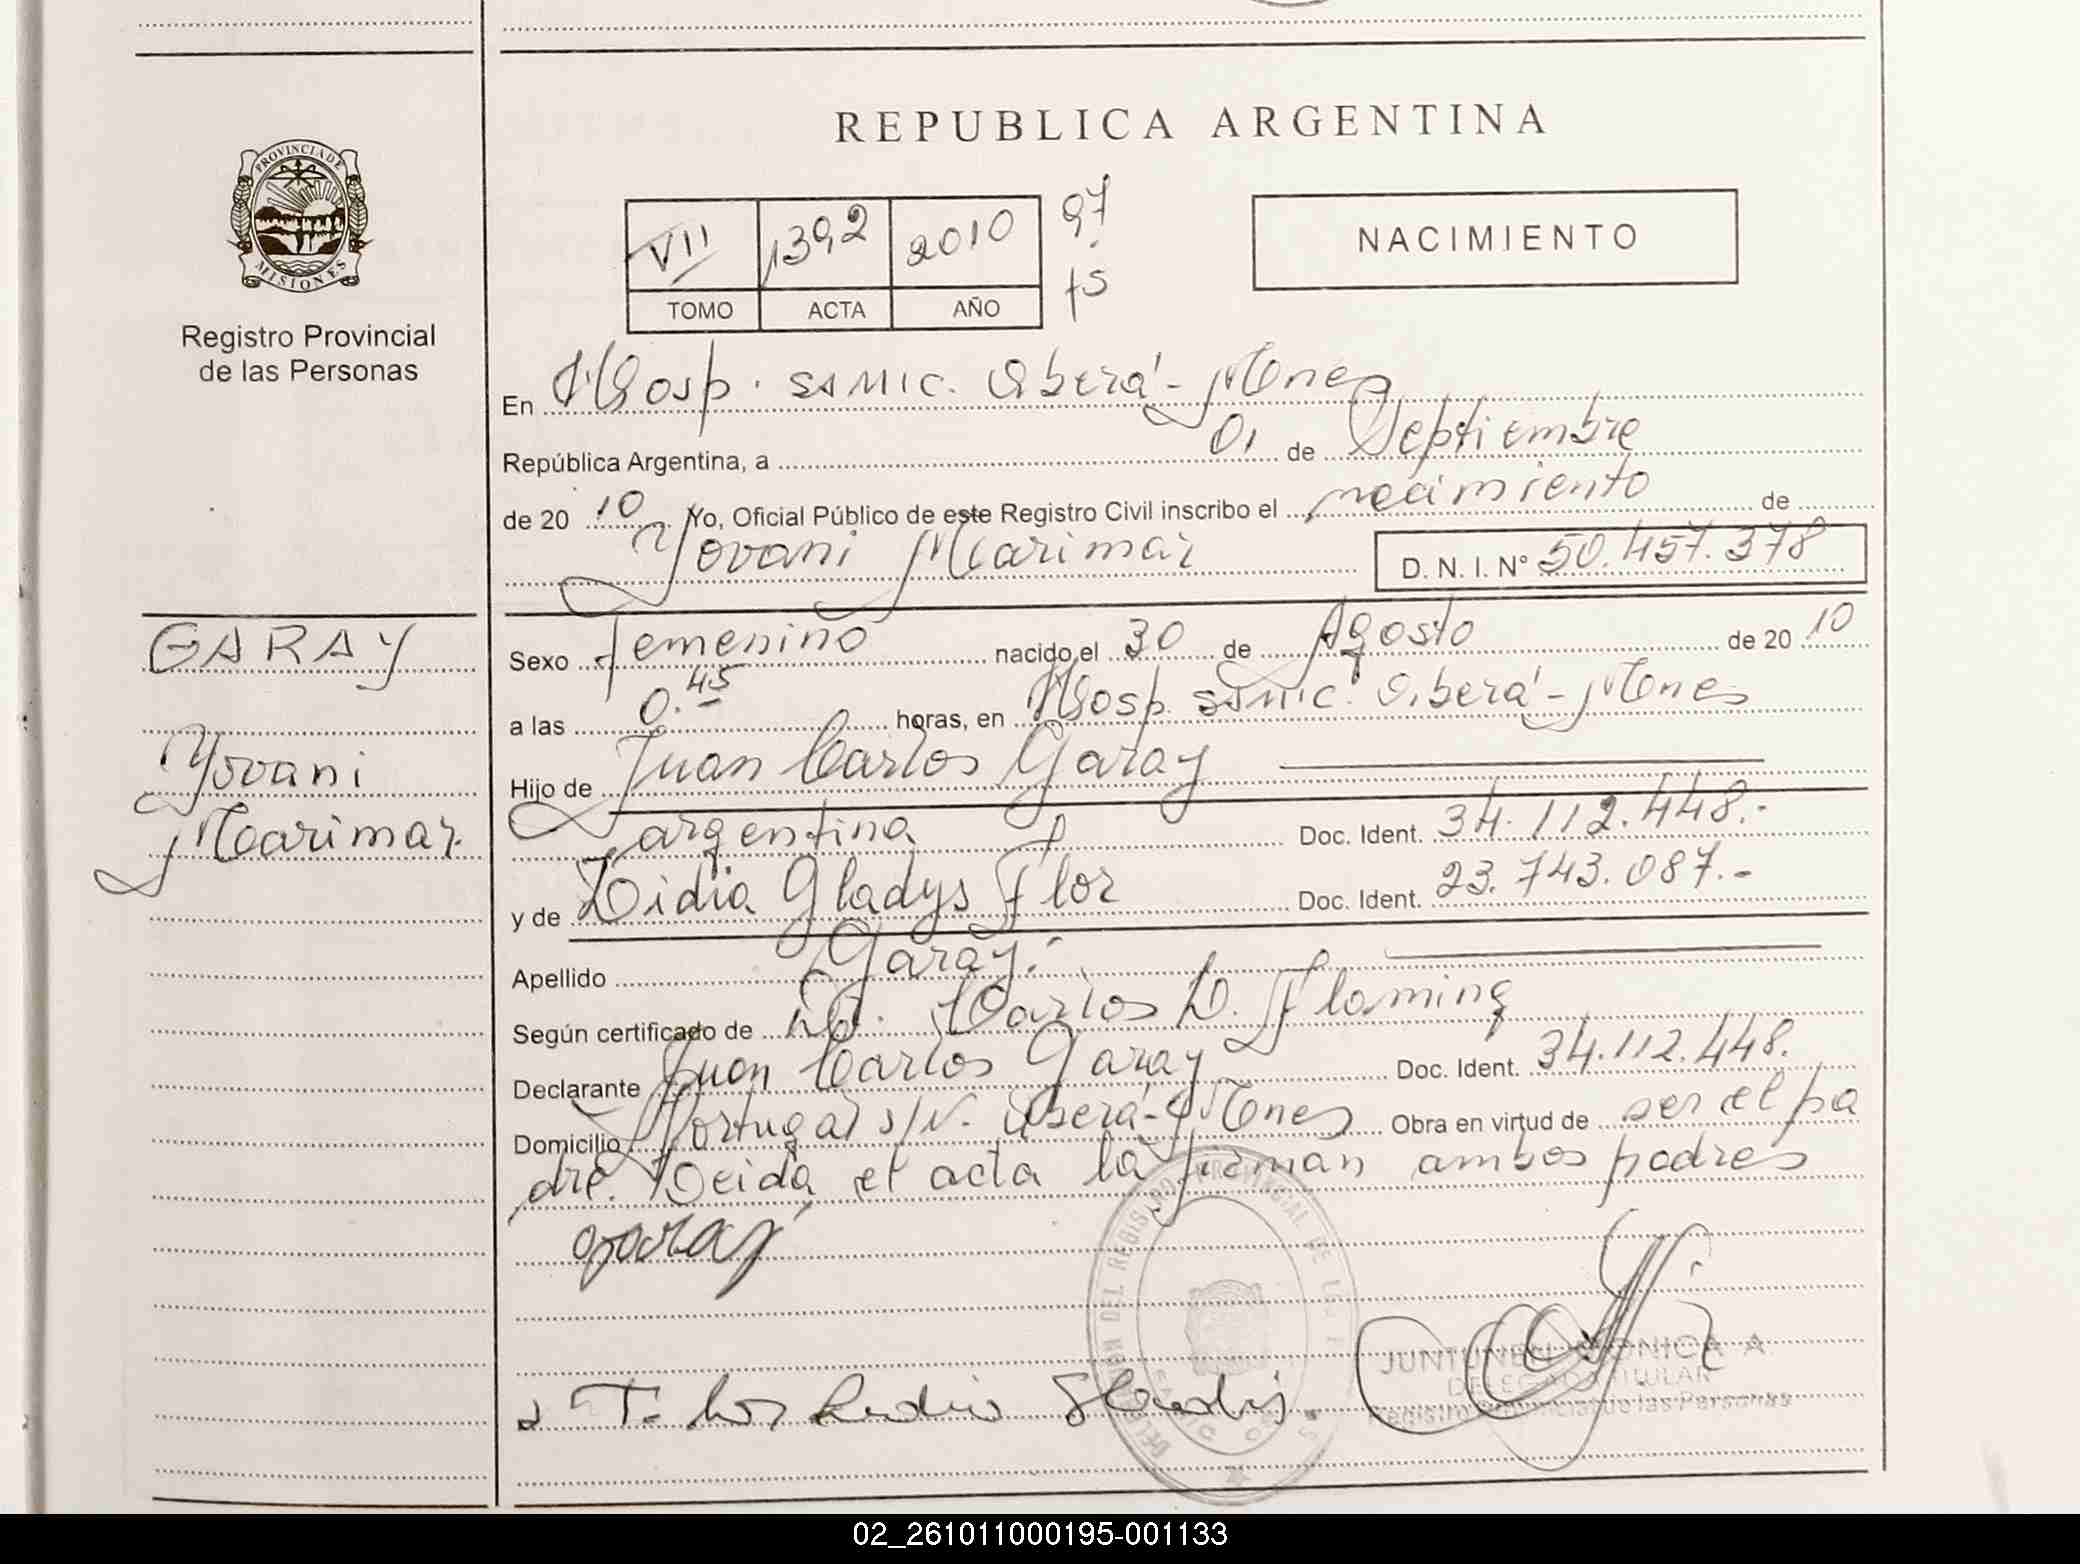 REPUBLICA ARGENTINA
PROVINCIA DE
MISIONES
Registro Provincial
de las Personas
VII 1392 2010 97
TOMO ACTA AÑO
NACIMIENTO
En Hosp. SAMIC. Oberá - Mnes
República Argentina, a 01 de Septiembre
de 20 10 Yo, Oficial Público de este Registro Civil inscribo el nacimiento de
Yovani Marimar D. N. I. Nº 50.457.378
GARAY
Yovani
Marimar.
Sexo Femenino nacido el 30 de Agosto de 20 10
a las 0.45 horas, en Hosp. SAMIC. Oberá - Mnes
Hijo de Juan Carlos Garay
argentina Doc. Ident. 34.112.448.-
y de Lidia Gladys Flor Doc. Ident. 23.743.087.-
Apellido Garay.
Según certificado de Carlos D. Floming
Declarante Juan Carlos Garay Doc. Ident. 34.112.448.
Domicilio Portugal s/N. Oberá - Mnes Obra en virtud de ser el pa
dre. Leida el acta la firman ambos padres
Garay
JUNTUNEN MONICA A
DELEGADA TITULAR
Registro Provincial de las Personas
02_261011000195-001133